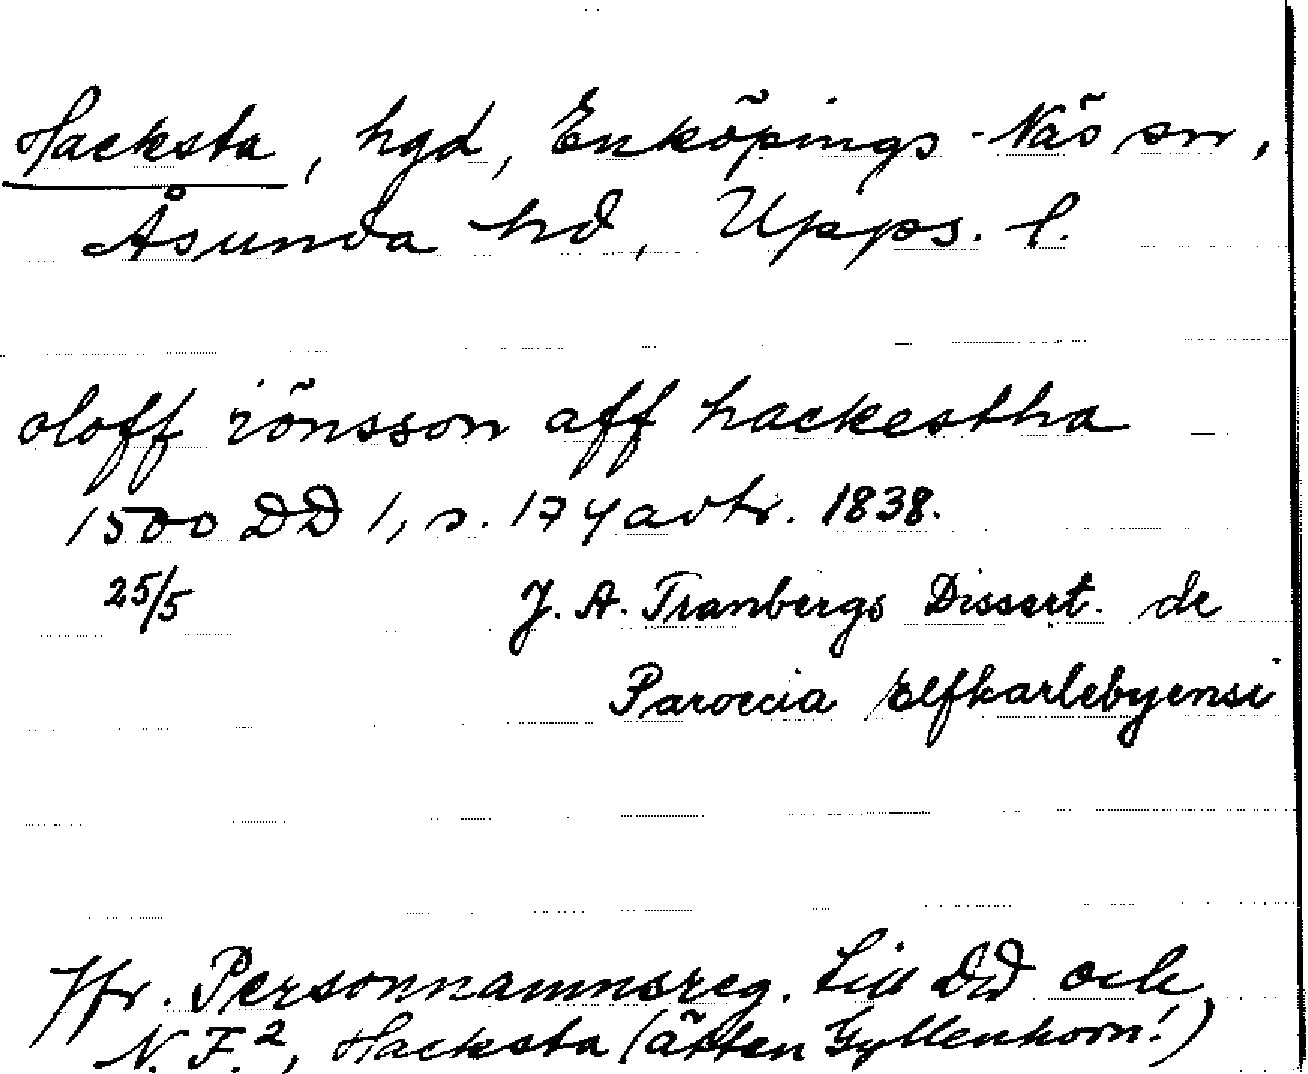 Hacksta, hgd, Enköpings-Näs sn,
Åsunda hd, Upps. l.
oloff iönsson aff hackestha
1500 DD 1, s. 174 avtr. 1838.
25/5 J. A. Tranbergs Dissert. de
Paroecia Elfkarlebyensi
Jfr. Personnamnsreg. till DD och
N. F.², Hacksta (ätten Gyllenhorn!)